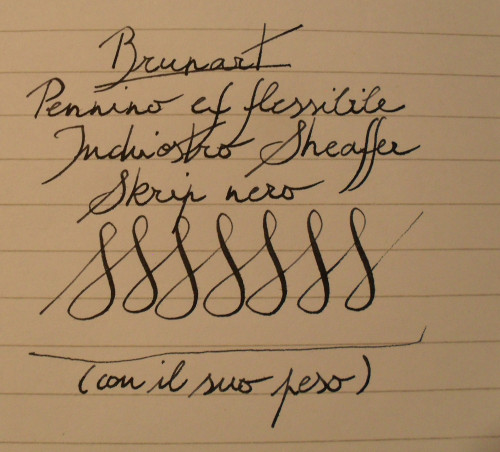 Brunart
Pennino ef flessibile
Inchiostro Sheaffer
Skrip nero
(con il suo peso)